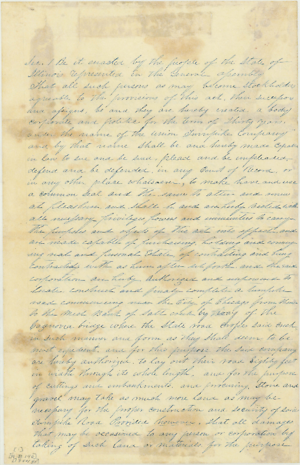 Sec 1 Be it enacted by the people of the State of
Illinois represented in the General Assembly
That all such persons as may become Stockholders
agreeable to the provisions of this act, their successors
and assigns, be and they are hereby created a body
corporate and politic for the term of thirty years
under the name of the Union Turnpike Company
and by that name shall be and hereby made capable
in law to sue and be sued, plead and be impleaded,
defend and be defended, in any Court of Record or
in any other place whatsoever, to make have and use
a common seal and the same to alter and renew
at pleasure and shall be and are hereby vested with
all necessary privileges powers and immunities to carry
the purposes and objects of this act into effect and
are made capable of purchasing holding and conveying
any real and personal estate, of contracting and being
contracted with as herein after set forth and the said
corporation are hereby authorized and empowered to
locate construct and finally complete a turnpike
road commencing near the City of Chicago from thence
to the West bank of Salt creek by way of the
bridge where the State road crosses said creek
in such manner and form as they shall deem to be
most expedient and for this purpose the said company
are hereby authorized to lay out their road eighty feet
in width through its whole length and for the purpose
of cuttings and embankments, and procuring stone and
gravel may take as much more land as may be
necessary for the proper construction and security of said
Turnpike Road Provided However, that all damages
that may be occasioned to any person or corporation by
taking of such land or materials for the purpose